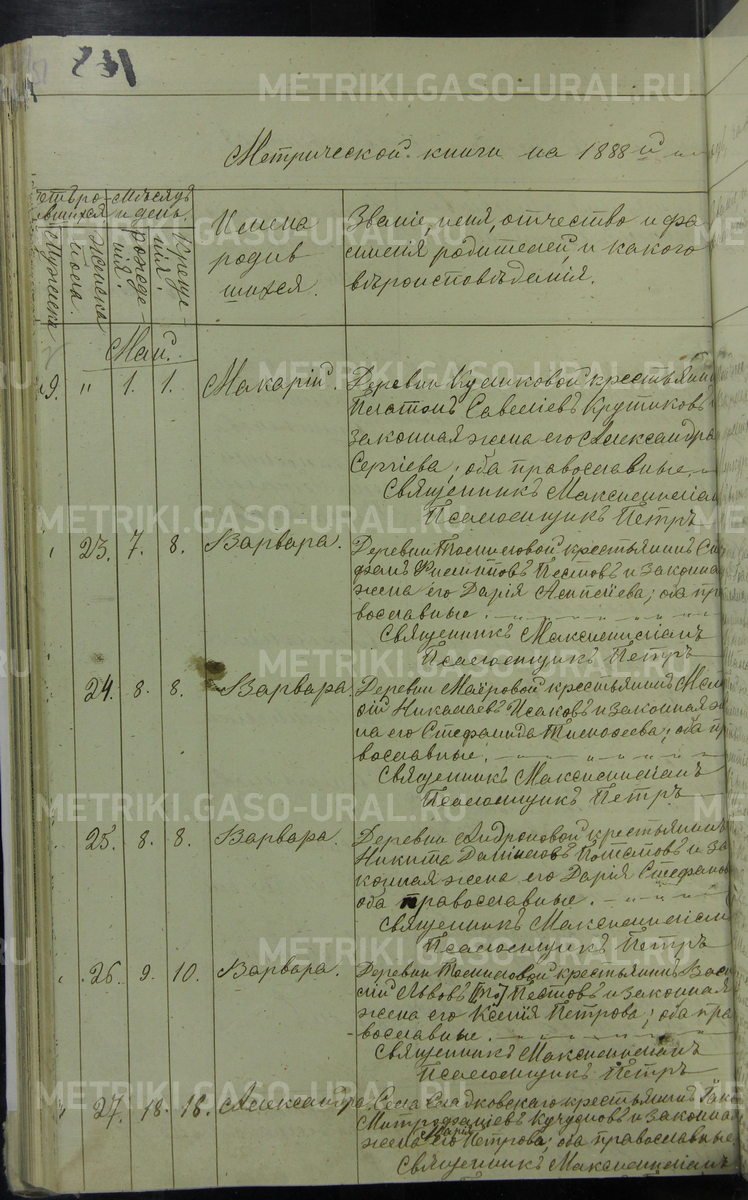 METRIKI.GASO-URAL.RU
Метрической книги на 1888й
Мѣсяцъ и день.
Мужеска
Женска пола.
рожденія.
крещенія.
Имена родившихся.
Званіе, имя, отчество и фамилія родителей, и какого вѣроисповѣданія.
Май.
9. " 1. 1. Макарій. Деревни Куликовой крестьянинъ
Платонъ Савеліевъ Крутиковъ
законная жена его Александра
Сергіева; оба православные.
Священникъ Максимиліанъ
Псаломщикъ Петръ
23. 7. 8. Варвара. Деревни крестьянинъ Сте
фанъ Филипповъ Пестовъ и законна
жена его Дарія Алексіева; оба пра
вославные.
Священникъ Максимиліанъ
Псаломщикъ Петръ
24. 8. 8. Варвара Деревни Маіровой крестьянинъ
Николаевъ Исаковъ и законная же
на его Стефанида Тимофеева; оба пр
вославные.
Священникъ Максимиліанъ
Псаломщикъ Петръ
25. 8. 8. Варвара. Деревни крестьянинъ
Никита Даниловъ Потаповъ и за
конная жена его Дарія Стефанов
оба православные.
Священникъ Максимиліан
Псаломщикъ Петръ
26. 9. 10. Варвара. Деревни крестьянинъ Васи
лій Львовъ Пестовъ и законная
жена его Ксенія Петрова; оба пра
вославные.
Священникъ Максимиліанъ
Псаломщикъ Петръ
27. 18. 18. Александра Села Сладковскаго крестьянинъ
Митрофаніевъ и законна
жена его Марія Петрова; оба православные
Священникъ Максимиліанъ